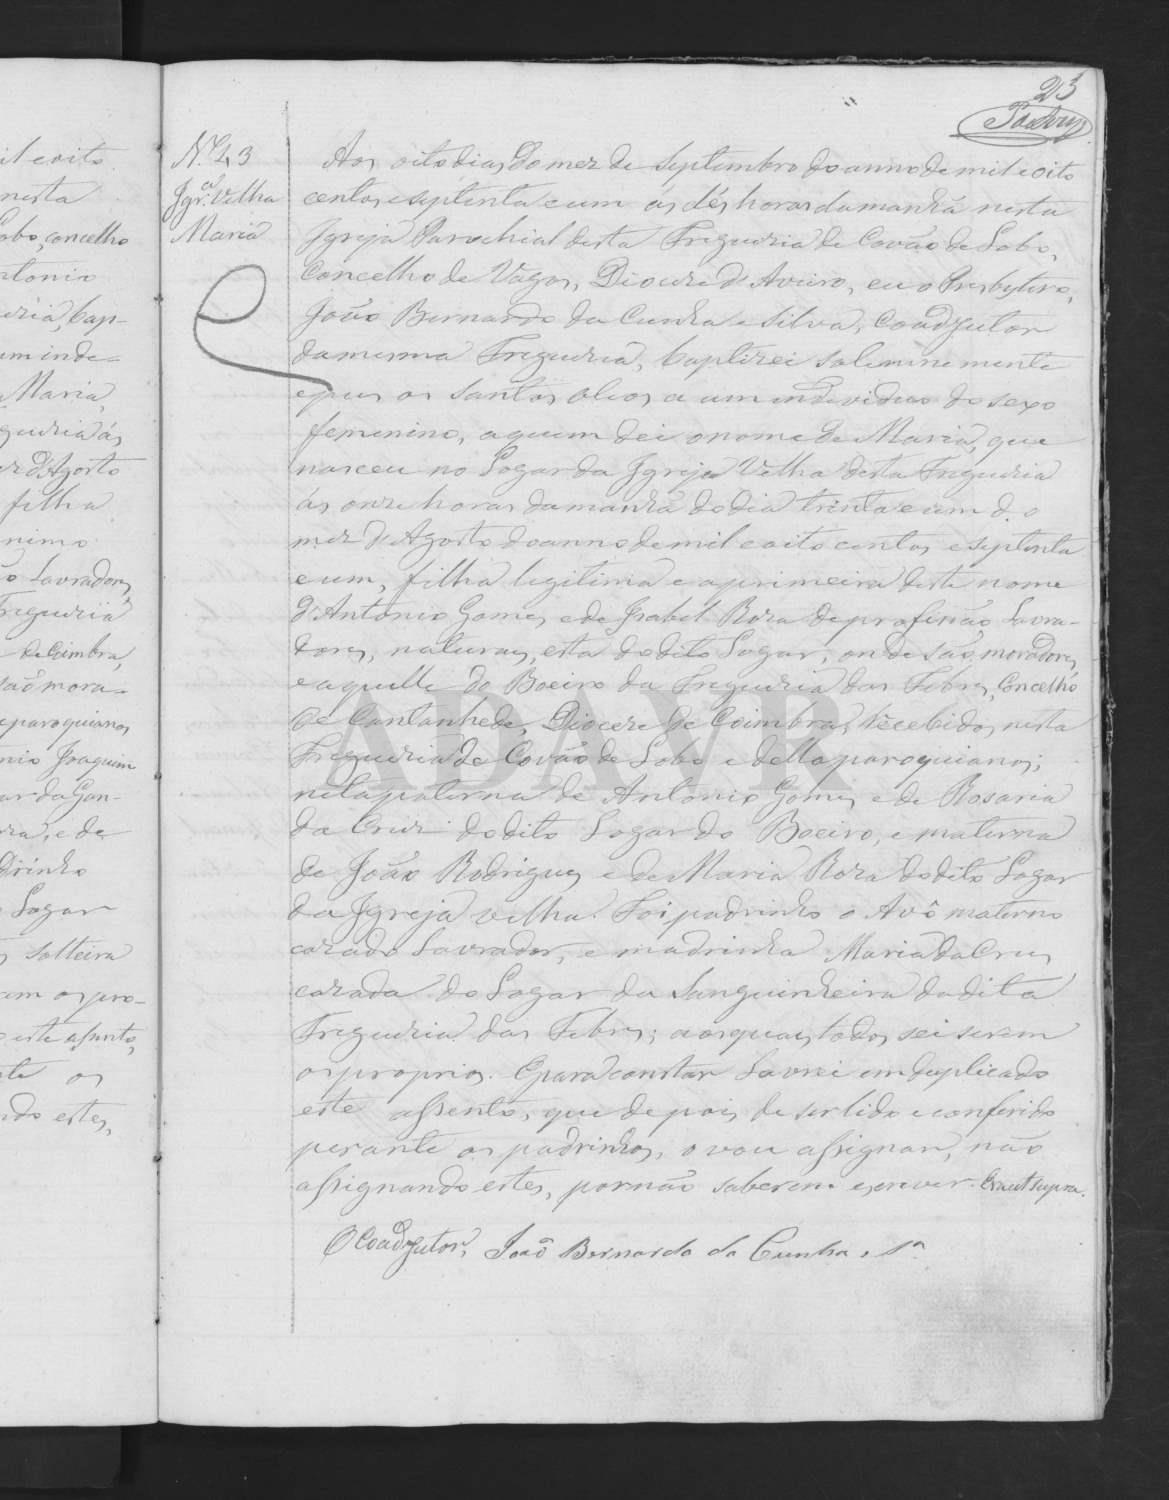 23
N.º 43
Igr.ª Velha
Maria
Aos oito dias do mez de Septembro do anno de mil e oito
centos e septenta e um ás dés horas da manhã nesta
Igreja Parochial desta Freguezia de Covão de Lobo,
Concelho de Vagos, Diocese d'Aveiro, eu o Presbytero,
João Bernardo da Cunha e Silva, Coadjutor
da mesma Freguezia, baptizei solemnemente
e puz os santos oleos a um individuo do sexo
femenino, a quem dei o nome de Maria, que
nasceu no Logar da Igreja Velha desta Freguezia
ás onze horas da manhã do dia trinta e um do
mez d'Agosto do anno de mil e oito centos e septenta
e um, filha legitima e a primeira deste nome
d'Antonio Gomes e de Isabel Roza de profissão Lavra-
dores, naturaes, esta do dito Logar, onde são moradores,
e aquelle do Boeiro da Freguezia das Febres, Concelho
de Cantanhede, Diocese de Coimbra, recebidos nesta
Freguezia de Covão de Lobo e della paroquianos;
neta paterna de Antonio Gomes e de Rosaria
da Cruz do dito Logar do Boeiro, e materna
de João Rodrigues e de Maria Roza do dito Logar
da Igreja velha. Foi padrinho o Avô materno
cazado Lavrador, e madrinha Maria da Cruz
cazada do Logar da Sanguinheira da dita
Freguezia das Febres; aos quaes todos sei serem
os proprios. E para constar Lavrei em duplicado
este assento, que depois de ser lido e conferido
perante os padrinhos, o vou assignar, não
assignando estes, por não saberem escrever. Era ut supra.
O Coadjutor, João Bernardo da Cunha e S.ª
ADAVR